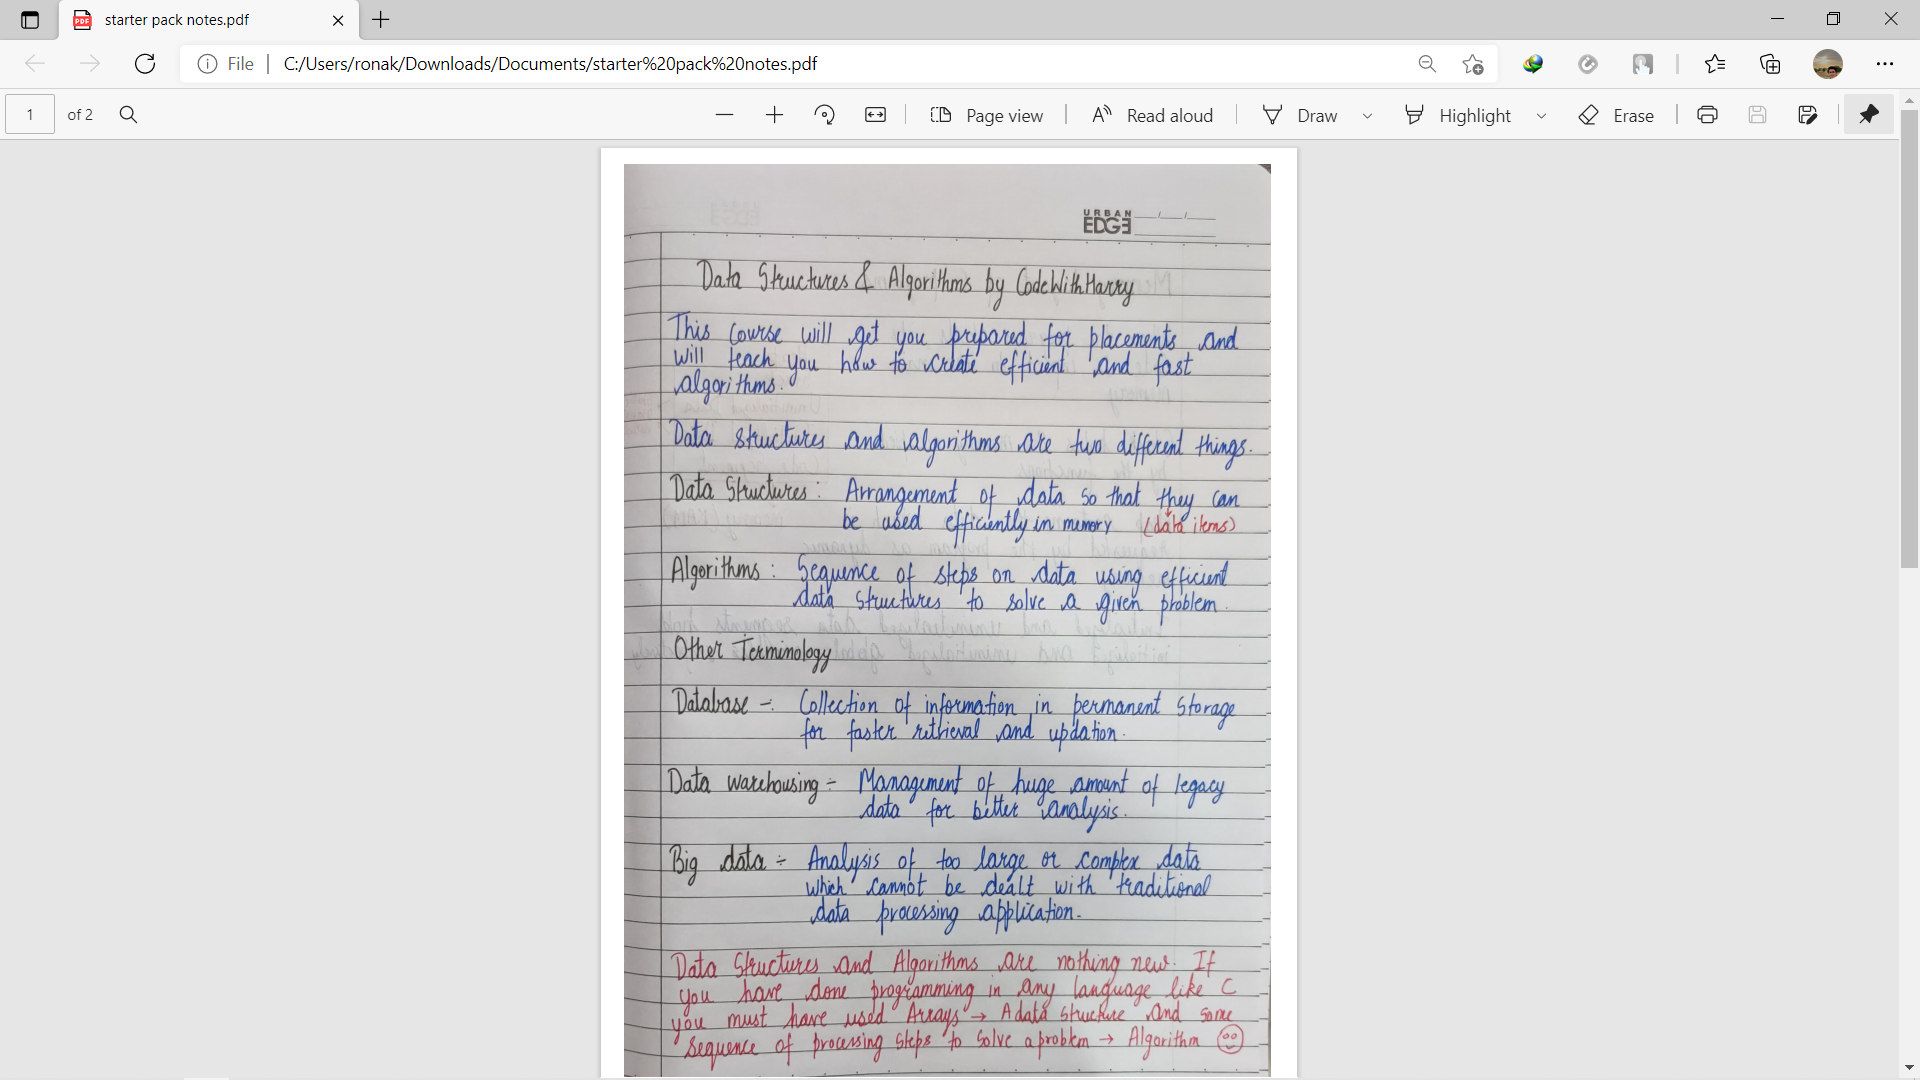 starter pack notes.pdf
File
C:/Users/ronak/Downloads/Documents/starter%20pack%20notes.pdf
1 of 2
Page view
Read aloud
Draw
Highlight
Erase
URBAN
EDGE
Data Structures & Algorithms by CodeWithHarry
This course will get you prepared for placements and
will teach you how to create efficient and fast
algorithms.
Data structures and algorithms are two different things.
Data Structures : Arrangement of data so that they can
be used efficiently in memory (data items)
Algorithms : Sequence of steps on data using efficient
data structures to solve a given problem.
Other Terminology
Database -: Collection of information in permanent storage
for faster retrieval and updation.
Data warehousing ÷ Management of huge amount of legacy
data for better analysis.
Big data ÷ Analysis of too large or complex data
which cannot be dealt with traditional
data processing application.
Data Structures and Algorithms are nothing new. If
you have done programming in any language like C
you must have used Arrays → A data structure and some
sequence of processing steps to solve a problem → Algorithm